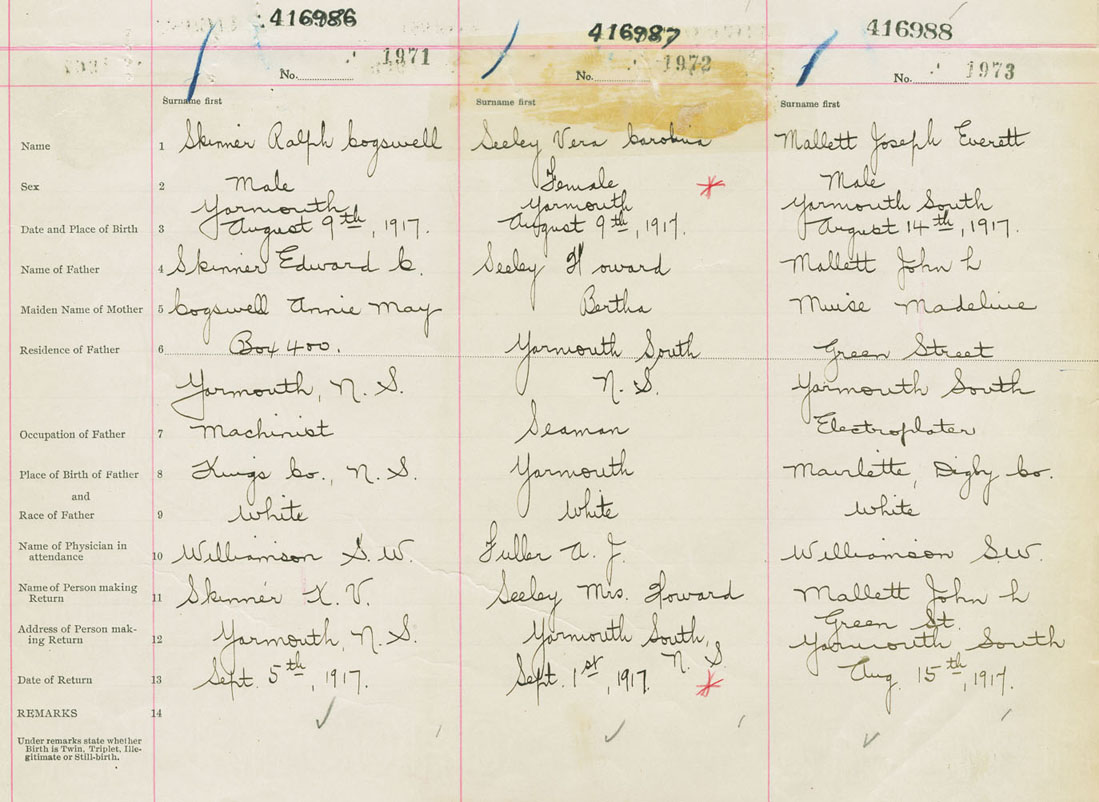 416986 416987 416988
No. 1971 No. 1972 No. 1973
Surname first Surname first Surname first
Name 1 Skinner Ralph Cogswell Seeley Vera Mallett Joseph Everett
Sex 2 Male Female Male
Yarmouth Yarmouth Yarmouth South
Date and Place of Birth 3 August 9th, 1917. August 9th, 1917. August 14th, 1917.
Name of Father 4 Skinner Edward C. Seeley Howard Mallett John L
Maiden Name of Mother 5 Cogswell Annie May Bertha Muise Madeline
Residence of Father 6 Box 400. Yarmouth South Green Street
Yarmouth, N. S. N. S. Yarmouth South
Occupation of Father 7 Machinist Seaman Electroplater
Place of Birth of Father 8 Kings Co., N. S. Yarmouth Digby Co.
and
Race of Father 9 White White White
Name of Physician in
attendance 10 Williamson S. W. Fuller A. J. Williamson S.W.
Name of Person making
Return 11 Skinner K. V. Seeley Mrs. Howard Mallett John L
Green St.
Address of Person mak-
ing Return 12 Yarmouth, N. S. Yarmouth South, Yarmouth South
N. S
Date of Return 13 Sept. 5th, 1917. Sept. 1st, 1917. Aug. 15th, 1917.
REMARKS 14
Under remarks state whether
Birth is Twin, Triplet, Ille-
gitimate or Still-birth.